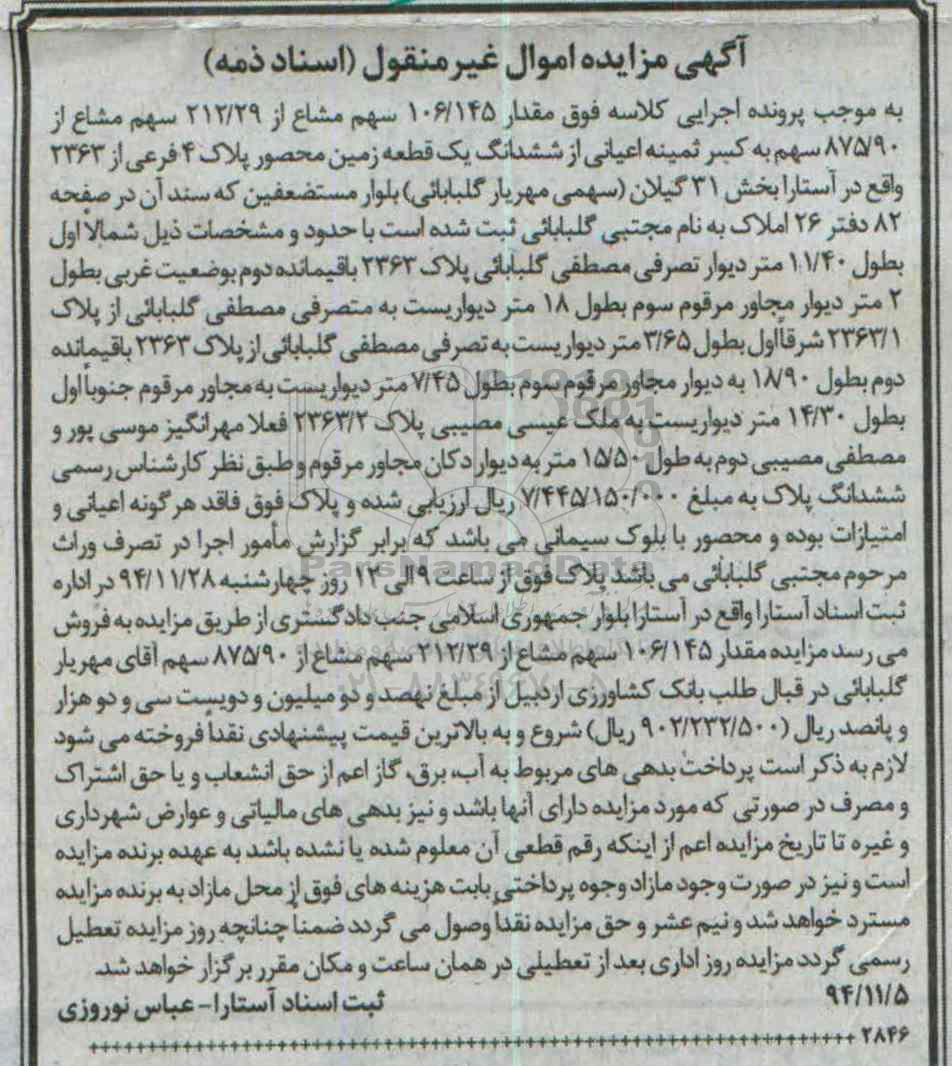 آگهی مزایده اموال غیر منقول (اسناد ذمه)
به موجب پرونده اجرایی کلاسه فوق مقدار ۱۰۶/۱۴۵ سهم مشاع از ۲۱۲/۲۹ سهم مشاع از
۸۷۵/۹۰ سهم به کسر ثمینه اعیانی از ششدانگ یک قطعه زمین محصور پلاک ۴ فرعی از ۲۳۶۳
واقع در آستارا بخش ۳۱ گیلان (سهمی مهریار گلبابائی) بلوار مستضعفین که سند آن در صفحه
۸۲ دفتر ۲۶ املاک به نام مجتبی گلبابائی ثبت شده است با حدود و مشخصات ذیل شمالا اول
بطول ۱۱/۴۰ متر دیوار تصرفی مصطفی گلبابائی پلاک ۲۳۶۳ باقیمانده دوم بوضعیت غربی بطول
۲ متر دیوار مجاور مرقوم سوم بطول ۱۸ متر دیواریست به متصرفی مصطفی گلبابائی از پلاک
۲۳۶۳/۱ شرقاً اول بطول ۳/۶۵ متر دیواریست به تصرفی مصطفی گلبابائی از پلاک ۲۳۶۳ باقیمانده
دوم بطول ۱۸/۹۰ به دیوار مجاور مرقوم سوم بطول ۷/۴۵ متر دیواریست به مجاور مرقوم جنوباً اول
بطول ۱۴/۳۰ متر دیواریست به ملک عیسی مصیبی پلاک ۲۳۶۳/۲ فعلا مهرانگیز موسی پور و
مصطفی مصیبی دوم به طول ۱۵/۵۰ متر به دیوار دکان مجاور مرقوم و طبق نظر کارشناس رسمی
ششدانگ پلاک به مبلغ ۷/۴۴۵/۱۵۰/۰۰۰ ریال ارزیابی شده و پلاک فوق فاقد هرگونه اعیانی و
امتیازات بوده و محصور با بلوک سیمانی می باشد که برابر گزارش مأمور اجرا در تصرف وراث
مرحوم مجتبی گلبابائی می باشد پلاک فوق از ساعت ۹ الی ۱۲ روز چهارشنبه ۹۴/۱۱/۲۸ در اداره
ثبت اسناد آستارا واقع در آستارا بلوار جمهوری اسلامی جنب دادگستری از طریق مزایده به فروش
می رسد مزایده مقدار ۱۰۶/۱۴۵ سهم مشاع از ۲۱۲/۲۹ سهم مشاع از ۸۷۵/۹۰ سهم آقای مهریار
گلبابائی در قبال طلب بانک کشاورزی اردبیل از مبلغ نهصد و دو میلیون و دویست سی و دو هزار
و پانصد ریال (۹۰۲/۲۳۲/۵۰۰ ریال) شروع و به بالاترین قیمت پیشنهادی نقداً فروخته می شود
لازم به ذکر است پرداخت بدهی های مربوط به آب، برق، گاز اعم از حق انشعاب و یا حق اشتراک
و مصرف در صورتی که مورد مزایده دارای آنها باشد و نیز بدهی های مالیاتی و عوارض شهرداری
و غیره تا تاریخ مزایده اعم از اینکه رقم قطعی آن معلوم شده یا نشده باشد به عهده برنده مزایده
است و نیز در صورت وجود مازاد وجوه پرداختی بابت هزینه های فوق از محل مازاد به برنده مزایده
مسترد خواهد شد و نیم عشر و حق مزایده نقداً وصول می گردد ضمناً چنانچه روز مزایده تعطیل
رسمی گردد مزایده روز اداری بعد از تعطیلی در همان ساعت و مکان مقرر برگزار خواهد شد.
۹۴/۱۱/۵
ثبت اسناد آستارا- عباس نوروزی
۲۸۴۶
ParsNamadData